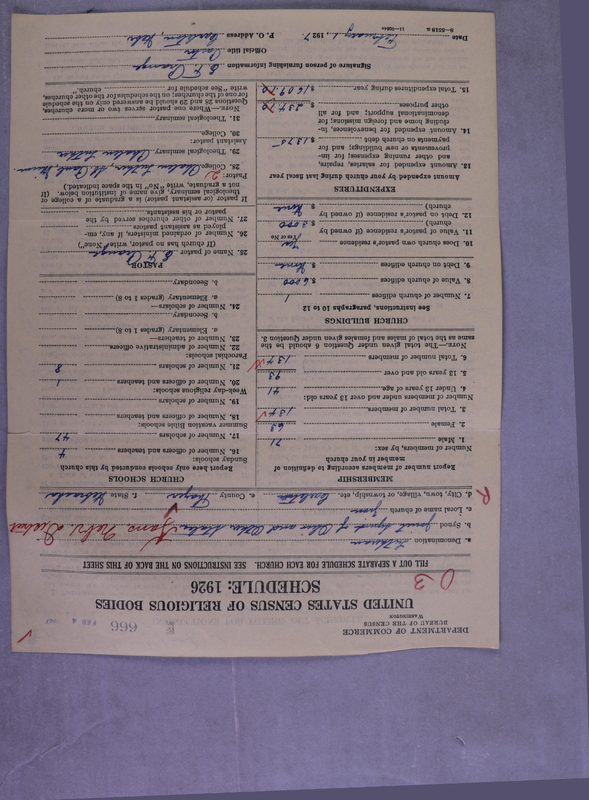 DEPARTMENT OF COMMERCE
BUREAU OF THE CENSUS
WASHINGTON
666
FEB 4 1927
UNITED STATES CENSUS OF RELIGIOUS BODIES
SCHEDULE: 1926
FILL OUT A SEPARATE SCHEDULE FOR EACH CHURCH. SEE INSTRUCTIONS ON THE BACK OF THIS SHEET
a. Denomination Lutheran
b. Synod Joint Synod of Ohio and Other States
c. Local name of church
d. City, town, village, or township, etc. Carleton e. County Thayer f. State Nebraska
MEMBERSHIP
Report number of members according to definition of
member in your church
Number of members, by sex:
1. Male 71
2. Female 63
3. Total number of members 134
Number of members under and over 13 years old:
4. Under 13 years of age 41
5. 13 years old and over 93
6. Total number of members 134
NOTE.—The total given under Question 6 should be the
same as the total of males and females given under Question 3.
CHURCH BUILDINGS
See instructions, paragraphs 10 to 12
7. Number of church edifices 1
8. Value of church edifices $ 6000
9. Debt on church edifices $ None
10. Does church own pastor's residence Yes
Yes or No
11. Value of pastor's residence (if owned by
church) $ 3000
12. Debt on pastor's residence (if owned by
church) $ None
EXPENDITURES
Amount expended by your church during last fiscal year
13. Amount expended for salaries, repairs,
and other running expenses; for im-
provements or new buildings; and for
payments on church debt $ 1375
14. Amount expended for benevolences, in-
cluding home and foreign missions; for
denominational support; and for all
other purposes $ 234.70
15. Total expenditures during year $ 1609.70
CHURCH SCHOOLS
Report here only schools conducted by this church
Sunday schools:
16. Number of officers and teachers 4
17. Number of scholars 47
Summer vacation Bible schools:
18. Number of officers and teachers
19. Number of scholars
Week-day religious schools:
20. Number of officers and teachers 1
21. Number of scholars 8
Parochial schools:
22. Number of administrative officers
23. Number of teachers—
a. Elementary (grades 1 to 8)
b. Secondary
24. Number of scholars—
a. Elementary (grades 1 to 8)
b. Secondary
PASTOR
25. Name of pastor
(If church has no pastor, write "None")
26. Number of ordained ministers, if any, em-
ployed as assistant pastor
27. Number of other churches served by the
pastor or his assistants
If pastor (or assistant pastor) is a graduate of a college or
theological seminary, give name of institution below. (If
not a graduate, write "No" in the space indicated.)
Pastor:
28. College
29. Theological seminary
Assistant pastor:
30. College
31. Theological seminary
NOTE.—Where one pastor serves two or more churches,
Questions 28 and 29 should be answered only on the schedule
for one of the churches; on the schedules for the other churches,
write "See schedule for church."
Signature of person furnishing information
Official title Pastor
P. O. Address Carleton, Nebr.
Date February 1, 1927